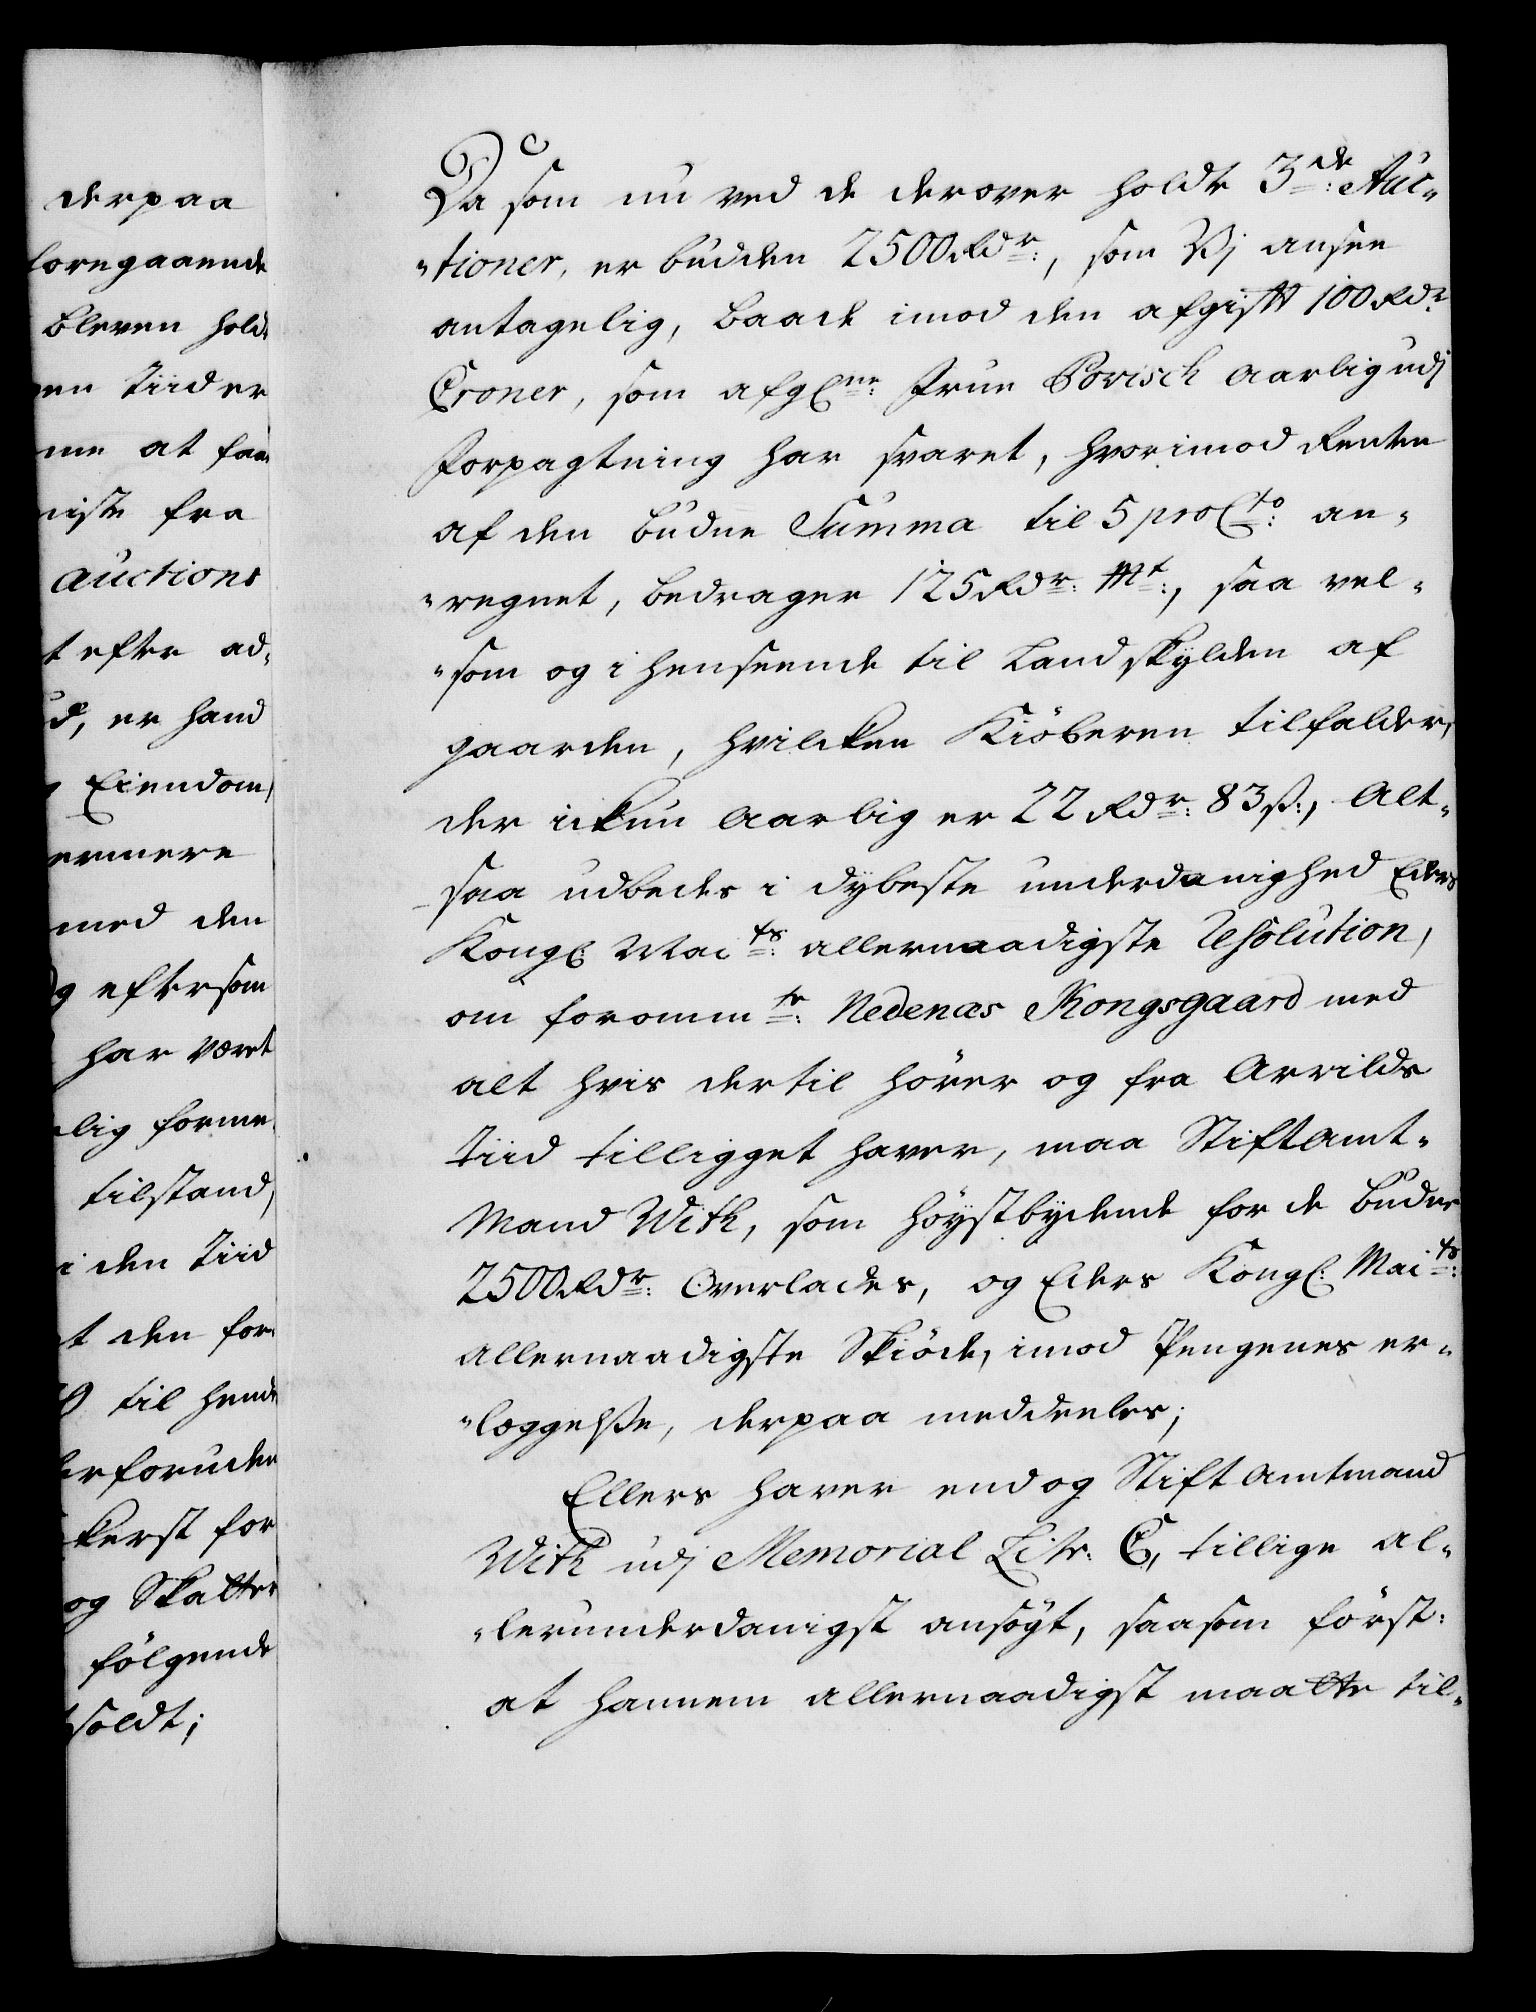 derpaa
foregaaende
bleven hold
en Tiider
me at faa
iste fra
auctions
t efter ad-
d, er hand
Eiendom,
ermere
med den
og eftersom
har været
lig forme
tilstand,
i den Tiid
t den for
til hende
erforuden
kerst for
og Skatter
følgende
soldt;
Da som nu ved de derover holdte 3de: Auc-
-tioner, er budden 2500 Rdr:, som Vj ansee
antagelig, baade imod den afgifft 100 Rdr
Croner, som afgl: Frue Povisch aarlig udj
Forpagtning har svaret, hvorimod Renten
af den budne Summa til 5 pro Cto: an-
-regnet, bedrager 125 Rdr: Mt:, saa vel-
-som og i henseende til Landskylden af
gaarden, hvilcken Kiöberen tilfalder,
der ickun aarlig er 22 Rdr: 83 ß:, Alt-
saa udbedes i dÿbeste underdanighed Eders
Kongl: Maits: allernaadigste Resolution,
om forommte: Nedenæs Kongsgaard med
alt hvis dertil hörer og fra Arrilds
Tiid tilligget haver, maa Stiftamt-
Mand With, som höÿstbydende for de budne
2500 Rdr: Overlades, og Eders Kongl: Maits:
allernaadigste Skiöde, imod Pengenes er-
-læggelße, derpaa meddeeles;
Ellers haver end og Stiftamtmand
With udj Memorial Litr: C, tillige al-
-lerunderdanigst ansögt, saasom först:
at hannem allernaadigst maatte til-